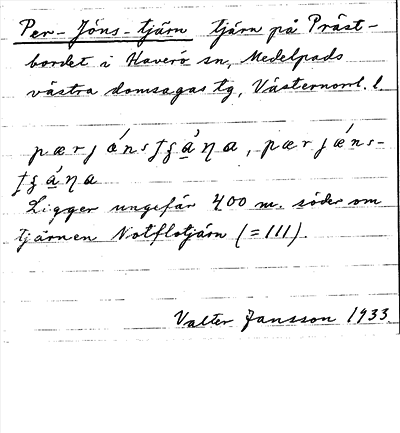 Per-Jöns-tjärn tjärn på Präst-
bordet i Haverö sn, Medelpads
västra domsagas tg, Västernorrl. l.
Ligger ungefär 400 m. söder om
tjärnen Notflotjärn (= III).
Valter Jansson 1933